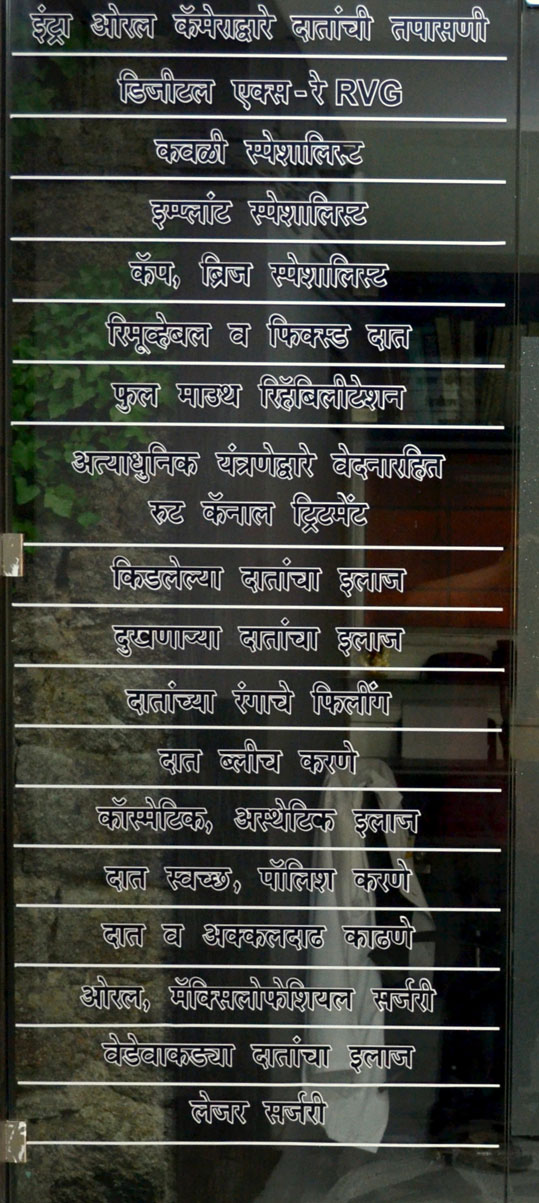 इंट्रा ओरल कॅमेराद्वारे दातांची तपासणी
डिजीटल एक्स-रे RVG
कवळी स्पेशालिस्ट
इम्प्लांट स्पेशालिस्ट
कॅप, ब्रिज स्पेशालिस्ट
रिमूव्हेबल व फिक्स्ड दात
फुल माउथ रिहॅबिलीटेशन
अत्याधुनिक यंत्रणेद्वारे वेदनारहित
रुट कॅनाल ट्रिटमेंट
किडलेल्या दातांचा इलाज
दुखणाऱ्या दातांचा इलाज
दातांच्या रंगाचे फिलींग
दात ब्लीच करणे
कॉस्मेटिक, अस्थेटिक इलाज
दात स्वच्छ, पॉलिश करणे
दात व अक्कलदाढ काढणे
ओरल, मॅक्सिलोफेशियल सर्जरी
वेडेवाकड्या दातांचा इलाज
लेजर सर्जरी